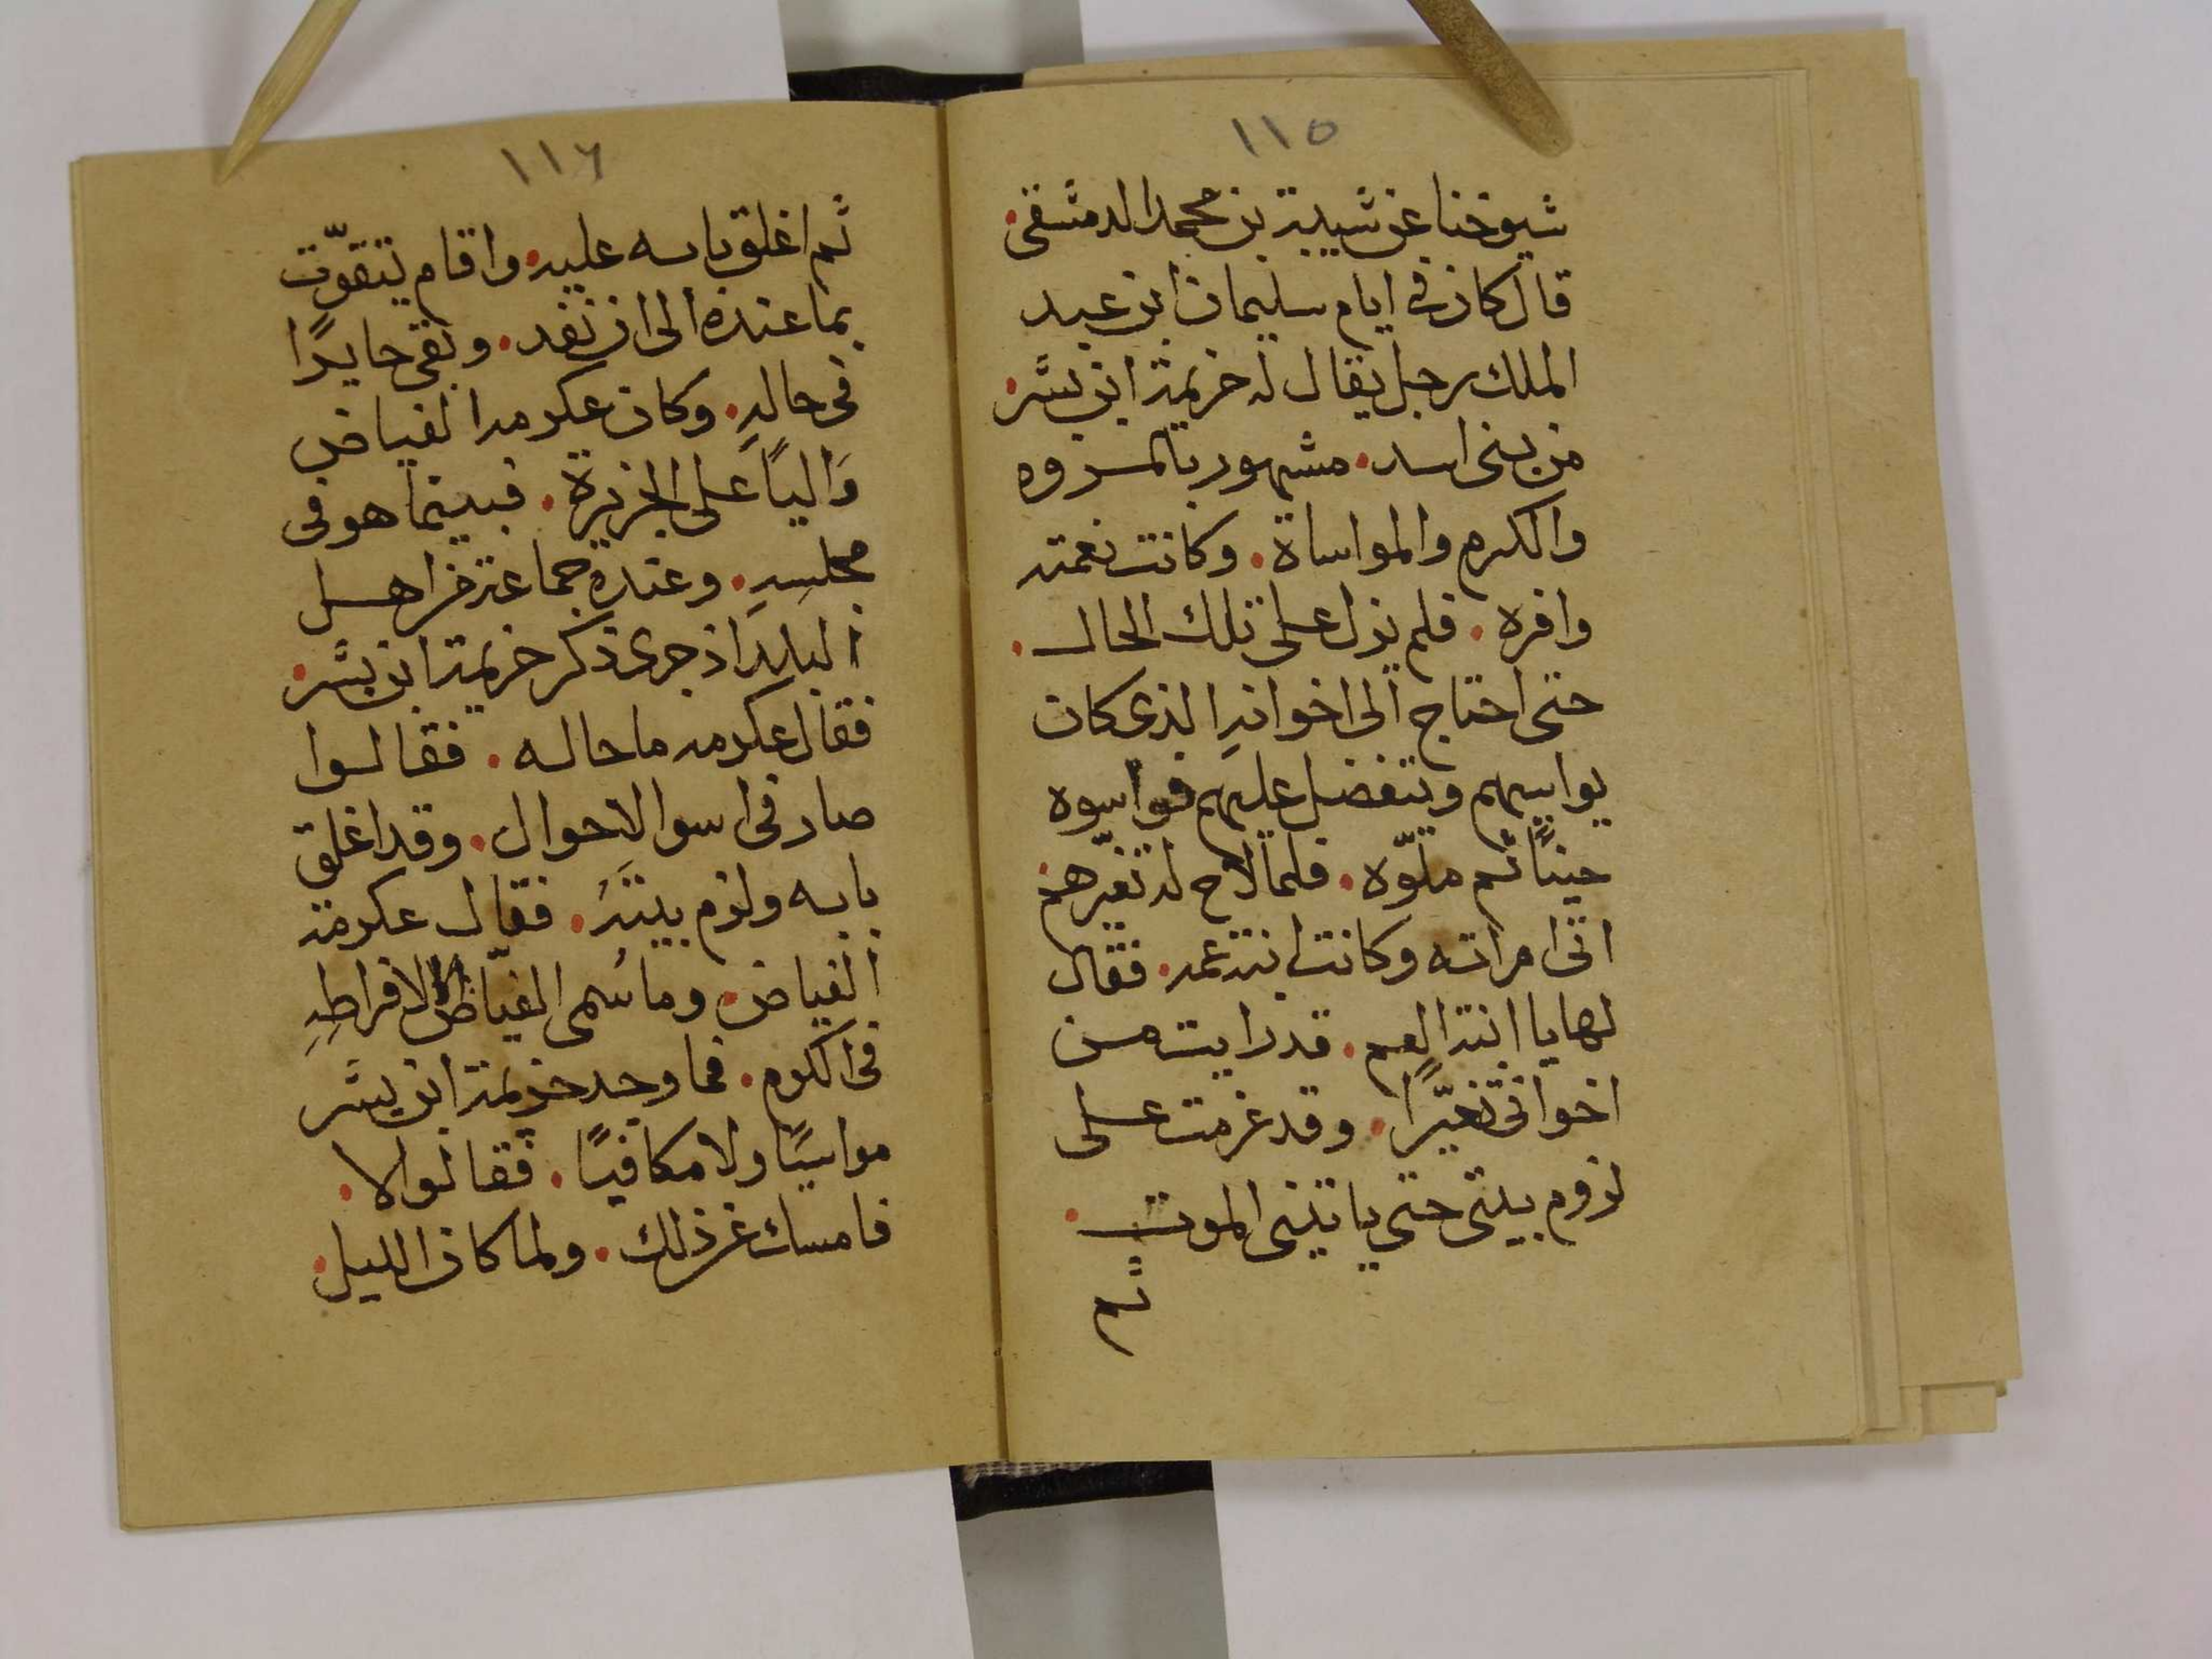 ١١٥
شيوخنا عن شيبة بن محمد الدمشقى.
قال كان فى ايام سليمان ابن عبد
الملك رجل يقال له خزيمة ابن بشر.
من بنى اسد. مشهور بالمروه
والكرم والمواساة. وكانت نعمته
وافره. فلم يزل على تلك الحال.
حتى احتاج الى اخوانهِ الذى كان
يواسيهم ويتفضل عليهم فواسوه
حينًا ثم ملّوه. فلما لاح له تغيّرهم.
اتى امراته وكانت ابنة عمه. فقال
لها يا ابنة العم. قد رايت من
اخوانى تغيّرًا. وقد عزمت على
لزوم بيتى حتى ياتينى الموت.
ثم
١١٦
ثم اغلق بابه عليه. واقام يتقوّت
بما عنده الى ان نفد. وبقى حايرًا
فى حالهِ. وكان عكرمه الفياض
وَاليًا على الجزيرة. فبينما هو فى
مجلسِهِ. وعنده جماعة من اهل
البلد اذ جرى ذكر خزيمة ابن بشر.
فقال عكرمه ما حاله. فقالوا
صار فى اسوا الاحوال. وقد اغلق
بابه ولزم بيتَهُ. فقال عكرمة
الفياض. وما سُمى الفيّاض الا لافراطِهِ
فى الكرم. فما وجد خزيمة ابن بشر
مواسيًا ولا مكافيًا. فقالوا لا.
فامسك عن ذلك. ولما كان الليل.